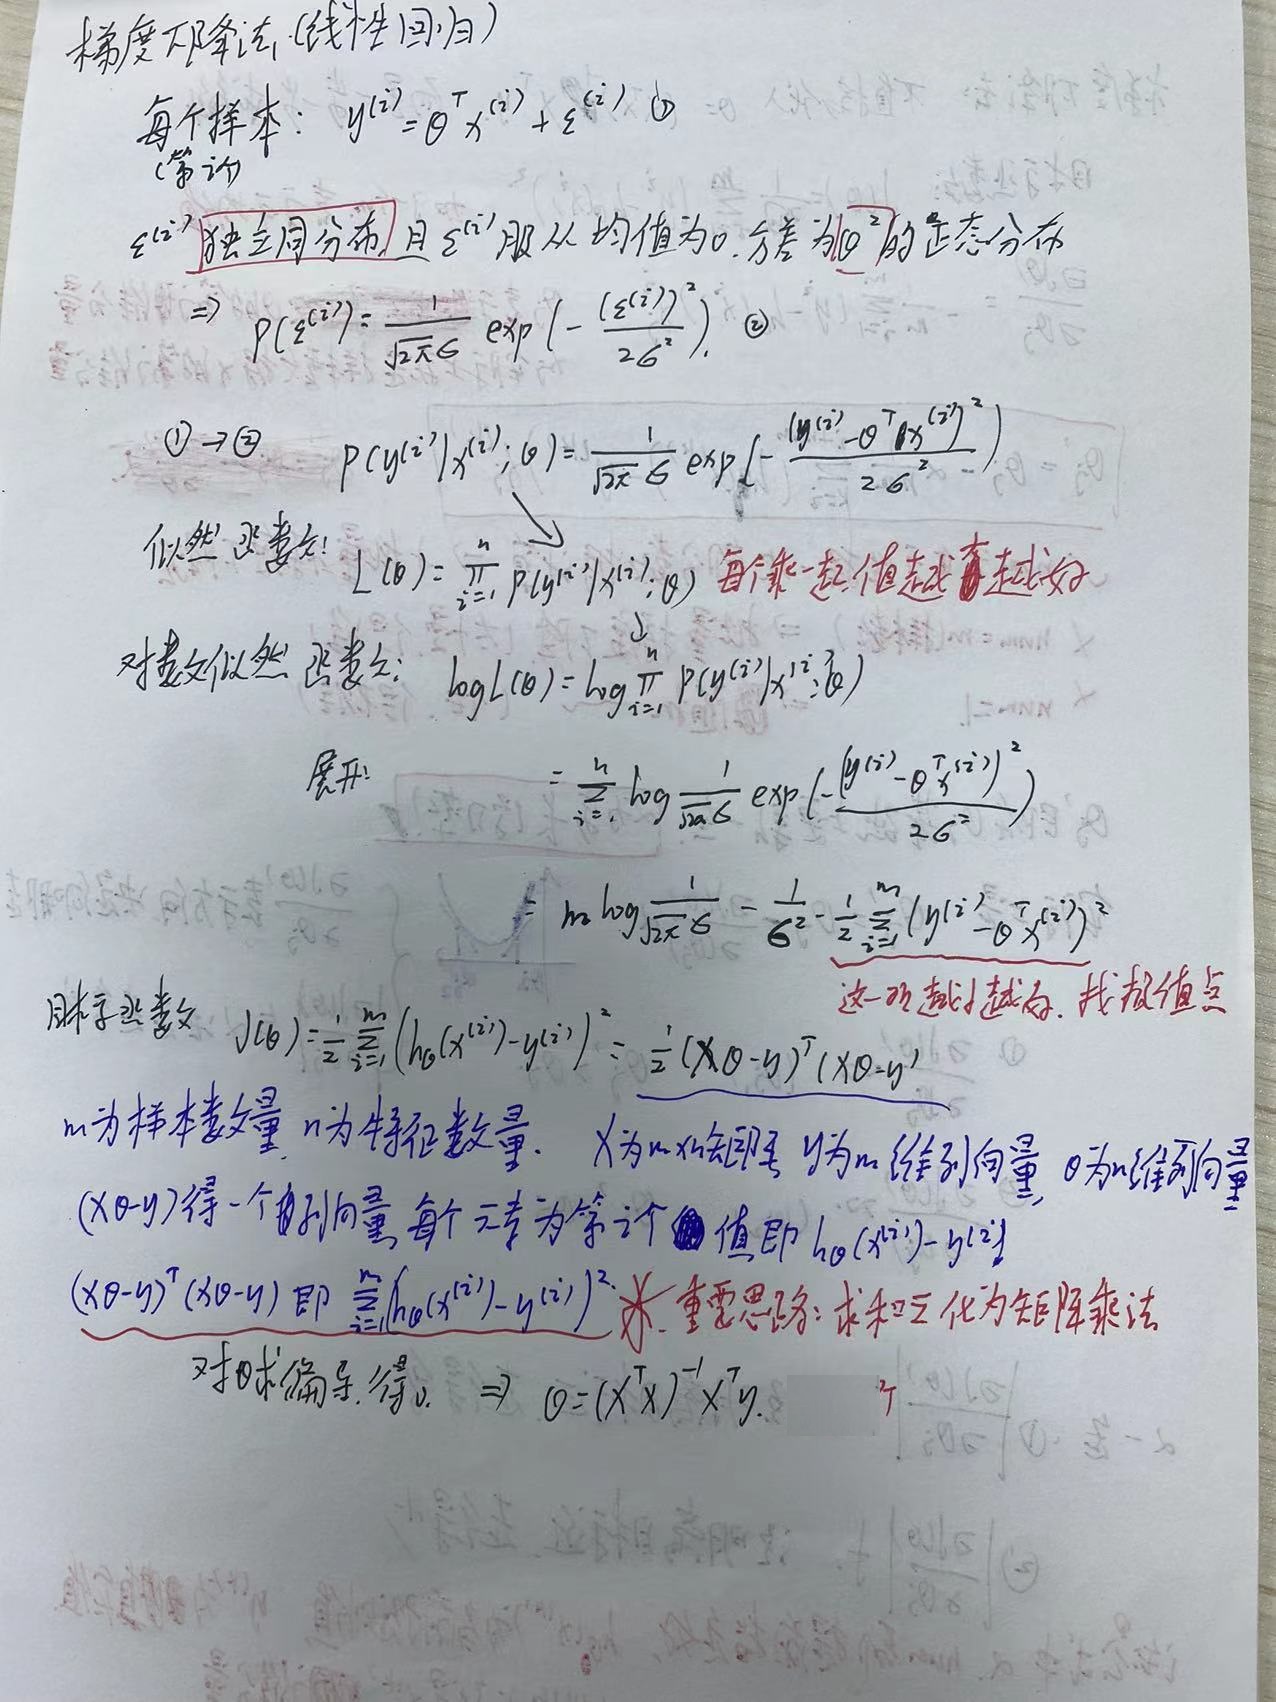 梯度下降法(线性回归)
每个样本: y⁽ⁱ⁾ = θᵀx⁽ⁱ⁾ + ε⁽ⁱ⁾ ①
(第i个)
ε⁽ⁱ⁾ 独立同分布,且 ε⁽ⁱ⁾ 服从均值为0.方差为θ²的正态分布
⇒ P(ε⁽ⁱ⁾) = 1/(√2π σ) exp(- (ε⁽ⁱ⁾)²/2σ²). ②
①→② P(y⁽ⁱ⁾|x⁽ⁱ⁾;θ) = 1/(√2π σ) exp(- (y⁽ⁱ⁾-θᵀx⁽ⁱ⁾)²/2σ²)
似然函数: L(θ) = ∏ⁿᵢ₌₁ P(y⁽ⁱ⁾|x⁽ⁱ⁾;θ) 每个乘一起,值越高越好
对数似然函数: log L(θ) = log ∏ⁿᵢ₌₁ P(y⁽ⁱ⁾|x⁽ⁱ⁾;θ)
展开: = Σⁿᵢ₌₁ log 1/(√2π σ) exp(- (y⁽ⁱ⁾-θᵀx⁽ⁱ⁾)²/2σ²)
= m log 1/(√2π σ) - 1/σ² - 1/2 Σᵐᵢ₌₁ (y⁽ⁱ⁾-θᵀx⁽ⁱ⁾)²
这一项越小越好.找极值点
目标函数 J(θ) = 1/2 Σᵐᵢ₌₁ (h_θ(x⁽ⁱ⁾)-y⁽ⁱ⁾)² = 1/2 (Xθ-y)ᵀ(Xθ-y)
m为样本数量,n为特征数量. X为m×n矩阵 y为m维列向量,θ为n维列向量
(Xθ-y)得一个列向量,每个元素为第i个 值即 h_θ(x⁽ⁱ⁾)-y⁽ⁱ⁾
(Xθ-y)ᵀ(Xθ-y) 即 Σᵐᵢ₌₁ (h_θ(x⁽ⁱ⁾)-y⁽ⁱ⁾)². 重要思路:求和∑化为矩阵乘法
对θ求偏导.得0. ⇒ θ=(XᵀX)⁻¹Xᵀy.